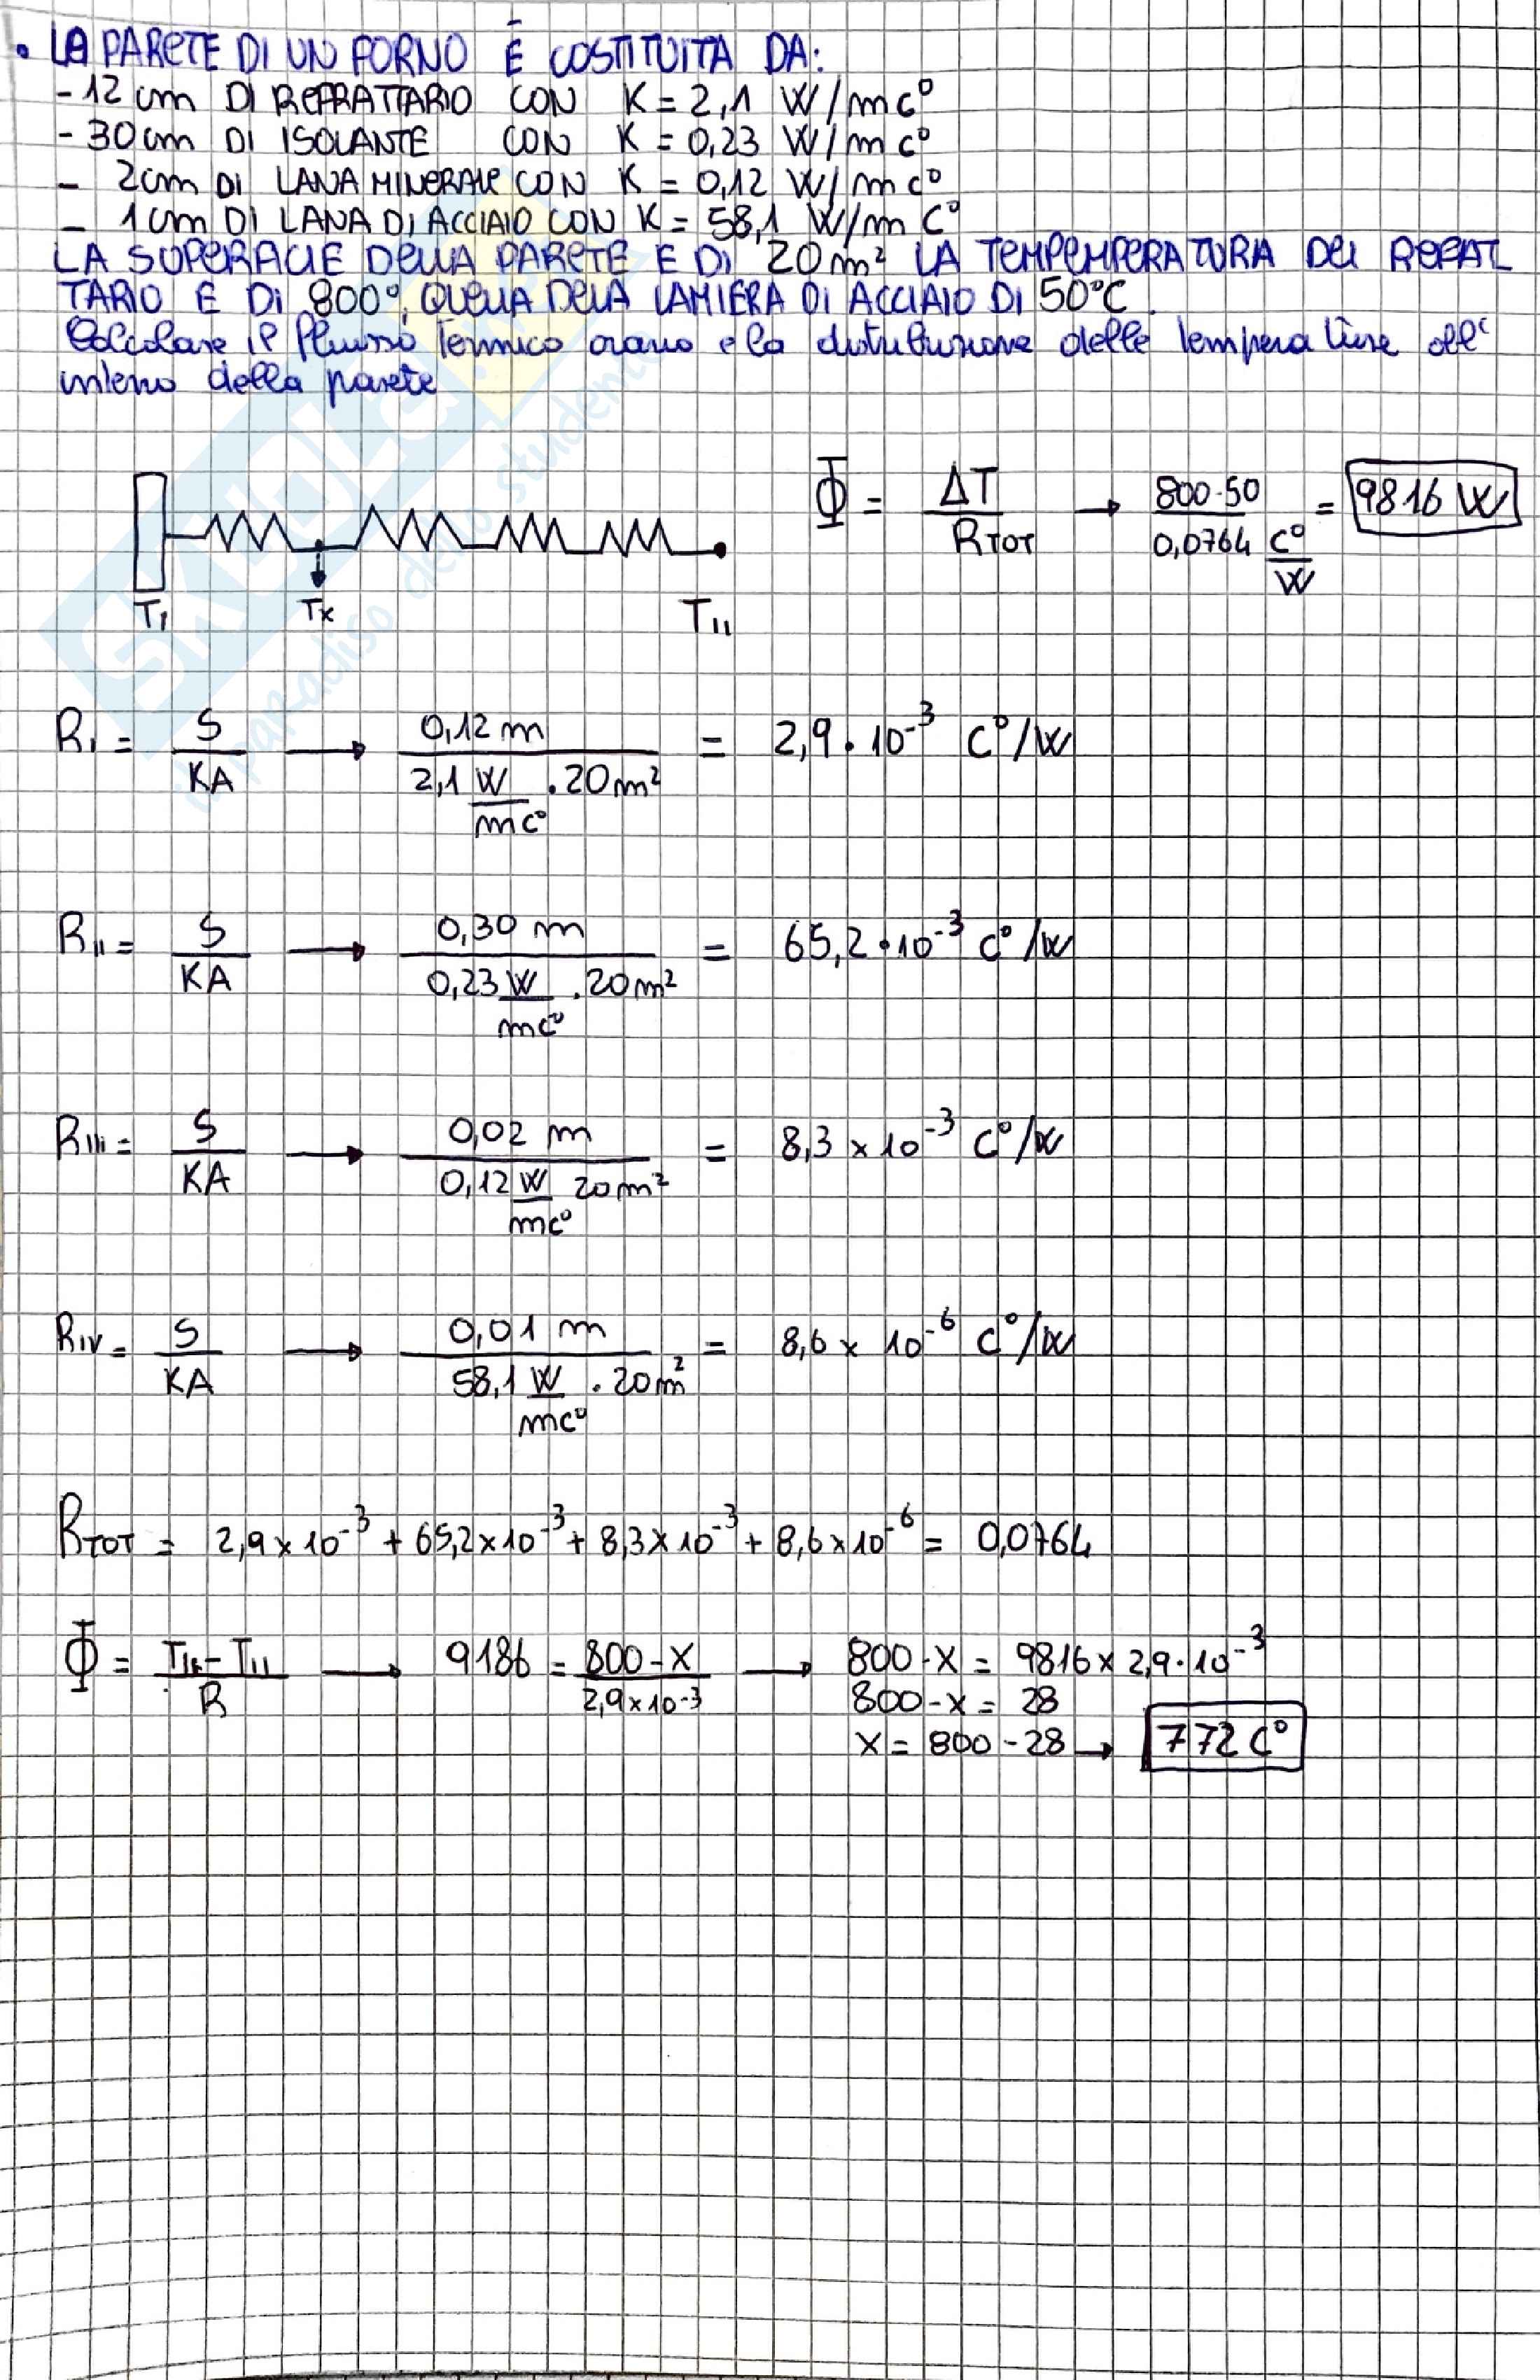 • LA PARETE DI UN FORNO È COSTITUITA DA:
- 12 cm DI REFRATTARIO CON K = 2,1 W/mc°
- 30 cm DI ISOLANTE CON K = 0,23 W/mc°
- 2 cm DI LANA MINERALE CON K = 0,12 W/mc°
- 1 cm DI LANA DI ACCIAIO CON K = 58,1 W/m C°
LA SUPERFICIE DELLA PARETE E DI 20 m² LA TEMPEMPERATURA DEL REFAT
TARIO E DI 800°, QUELLA DELA LAMIERA DI ACCIAIO DI 50°C.
Calcolare il flusso Termico orario e la distribuzione delle temperature all'
interno della parete
Φ = ΔT / RTOT → 800-50 / 0,0764 C°/W = 9816 W
T₁ Tx T₁₁
R₁ = S / KA → 0,12 m / 2,1 W/mc° · 20 m² = 2,9 · 10⁻³ C°/W
R₁₁ = S / KA → 0,30 m / 0,23 W/mc° · 20 m² = 65,2 · 10⁻³ C°/W
R₁₁₁ = S / KA → 0,02 m / 0,12 W/mc° 20 m² = 8,3 × 10⁻³ C°/W
RIV = S / KA → 0,01 m / 58,1 W/mc° · 20 m² = 8,6 × 10⁻⁶ C°/W
RTOT = 2,9 × 10⁻³ + 65,2 × 10⁻³ + 8,3 × 10⁻³ + 8,6 × 10⁻⁶ = 0,0764
Φ = - T₁₁ / R → 9186 = 800 - X / 2,9 × 10⁻³ → 800 - X = 9816 × 2,9 · 10⁻³
800 - X = 28
X = 800 - 28 → 772 C°
SKUOLA.net
il paradiso dello studente